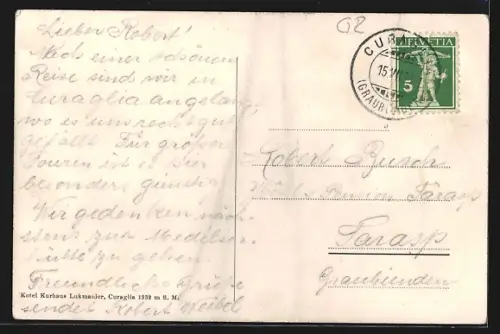 Lieber Robert!
Nach einer schönen
Reise sind wir in
Curaglia angelangt,
wo es uns recht gut
gefällt. Für größere
Touren ist es hier
besonders günstig.
Wir gedenken näch-
stens zur Medelser-
hütte zu gehen.
Freundliche Grüße
sendet Robert Weibel
Hotel Kurhaus Lukmanier, Curaglia 1332 m ü. M.
GZ
CURA
15.VII
(GRAUBÜ
HELVETIA
5
Robert Busch
Pension Tarasp
Tarasp
Graubünden